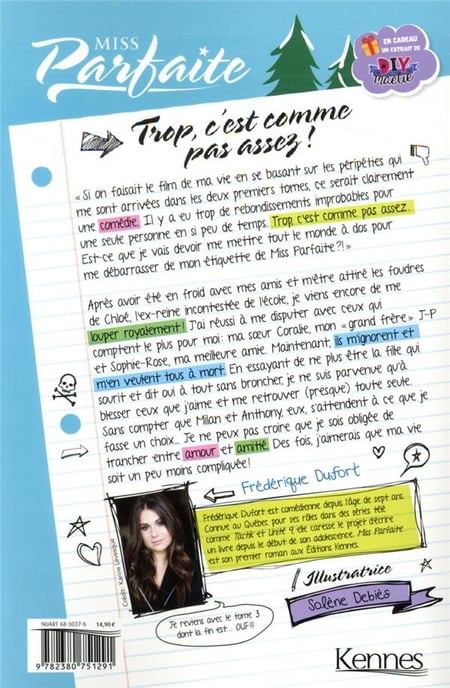 MISS
Parfaite
EN CADEAU
UN EXTRAIT DE
DIY
Trop, c'est comme
pas assez !
« Si on faisait le film de ma vie en se basant sur les péripéties qui
me sont arrivées dans les deux premiers tomes, ce serait clairement
une comédie. Il y a eu trop de rebondissements improbables pour
une seule personne en si peu de temps. Trop, c'est comme pas assez.
Est-ce que je vais devoir me mettre tout le monde à dos pour
me débarrasser de mon étiquette de Miss Parfaite?! »
Après avoir été en froid avec mes amis et m'être attiré les foudres
de Chloé, l'ex-reine incontestée de l'école, je viens encore de me
louper royalement! J'ai réussi à me disputer avec ceux qui
comptent le plus pour moi: ma sœur Coralie, mon « grand frère » J-P
et Sophie-Rose, ma meilleure amie. Maintenant, ils m'ignorent et
m'en veulent tous à mort. En essayant de ne plus être la fille qui
sourit et dit oui à tout sans broncher, je ne suis parvenue qu'à
blesser ceux que j'aime et me retrouver (presque) toute seule.
Sans compter que Milan et Anthony, eux, s'attendent à ce que je
fasse un choix... Je ne peux pas croire que je sois obligée de
trancher entre amour et amitié. Des fois, j'aimerais que ma vie
soit un peu moins compliquée!
Frédérique Dufort
Frédérique Dufort est comédienne depuis l'âge de sept ans.
Connue au Québec pour ses rôles dans des séries télé
comme Tactik et Unité 9, elle caresse le projet d'écrire
un livre depuis le début de son adolescence. Miss Parfaite
est son premier roman aux Éditions Kennes.
Crédit: Karine Lévesque
Illustratrice
Solène Debiès
Je reviens avec le tome 3
dont la fin est... OUF!!!
NUART 68-3037-6 14,90 €
9 782380 751291
Kennes